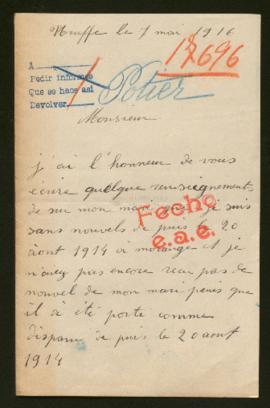 Neuffe le 7 mai 1916
18696
A
Pedir informe
Que se hace así
Devolver
1
Potier
Monsieur
j'ai l'honneur de vous
écrire quelque renseignements
de sur mon mari je suis
sans nouvels de puis le 20
août 1914 à morange et je
n'ai pas encore recu pas de
nouvel de mon mari puis que
il à été porté comme
disparu de puis le 20 aout
1914
Fecho
e.a.e.